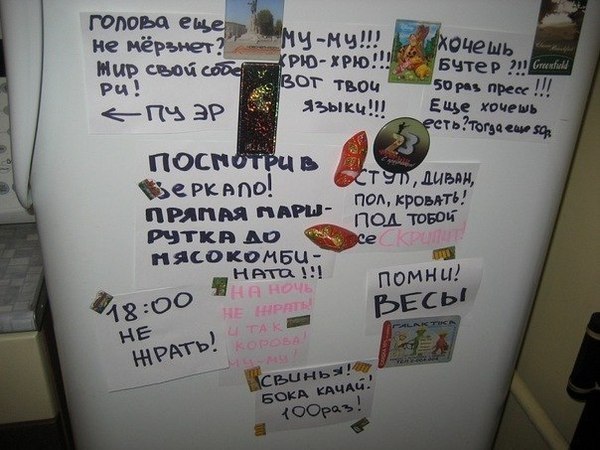 ГОЛОВА ЕЩЕ
НЕ МЁРЗНЕТ?
ЖИР СВОЙ СОБЕ
РИ!
← ПУЭР
МУ-МУ!!!
ХРЮ-ХРЮ!!!
ВОТ ТВОИ
ЯЗЫКИ!!!
ХОЧЕШЬ
БУТЕР?!!
50 РАЗ ПРЕСС!!!
ЕЩЕ ХОЧЕШЬ
ЕСТЬ? ТОГДА ЕЩЕ 50р.
Greenfield
23
ПОСМОТРИ В
ЗЕРКАЛО!
ПРЯМАЯ МАРШ-
РУТКА ДО
МЯСОКОМБИ-
НАТА!!!
СТУЛ, ДИВАН,
ПОЛ, КРОВАТЬ!
ПОД ТОБОЙ
ВСЕ СКРИПИТ!
18:00
НЕ
ЖРАТЬ!
НА НОЧЬ
НЕ ЖРАТЬ!
И ТАК
КОРОВА!
МУ-МУ!
ПОМНИ!
ВЕСЫ
GALAKTIKA
СВИНЬЯ!
БОКА КАЧАЙ!
100 РАЗ!